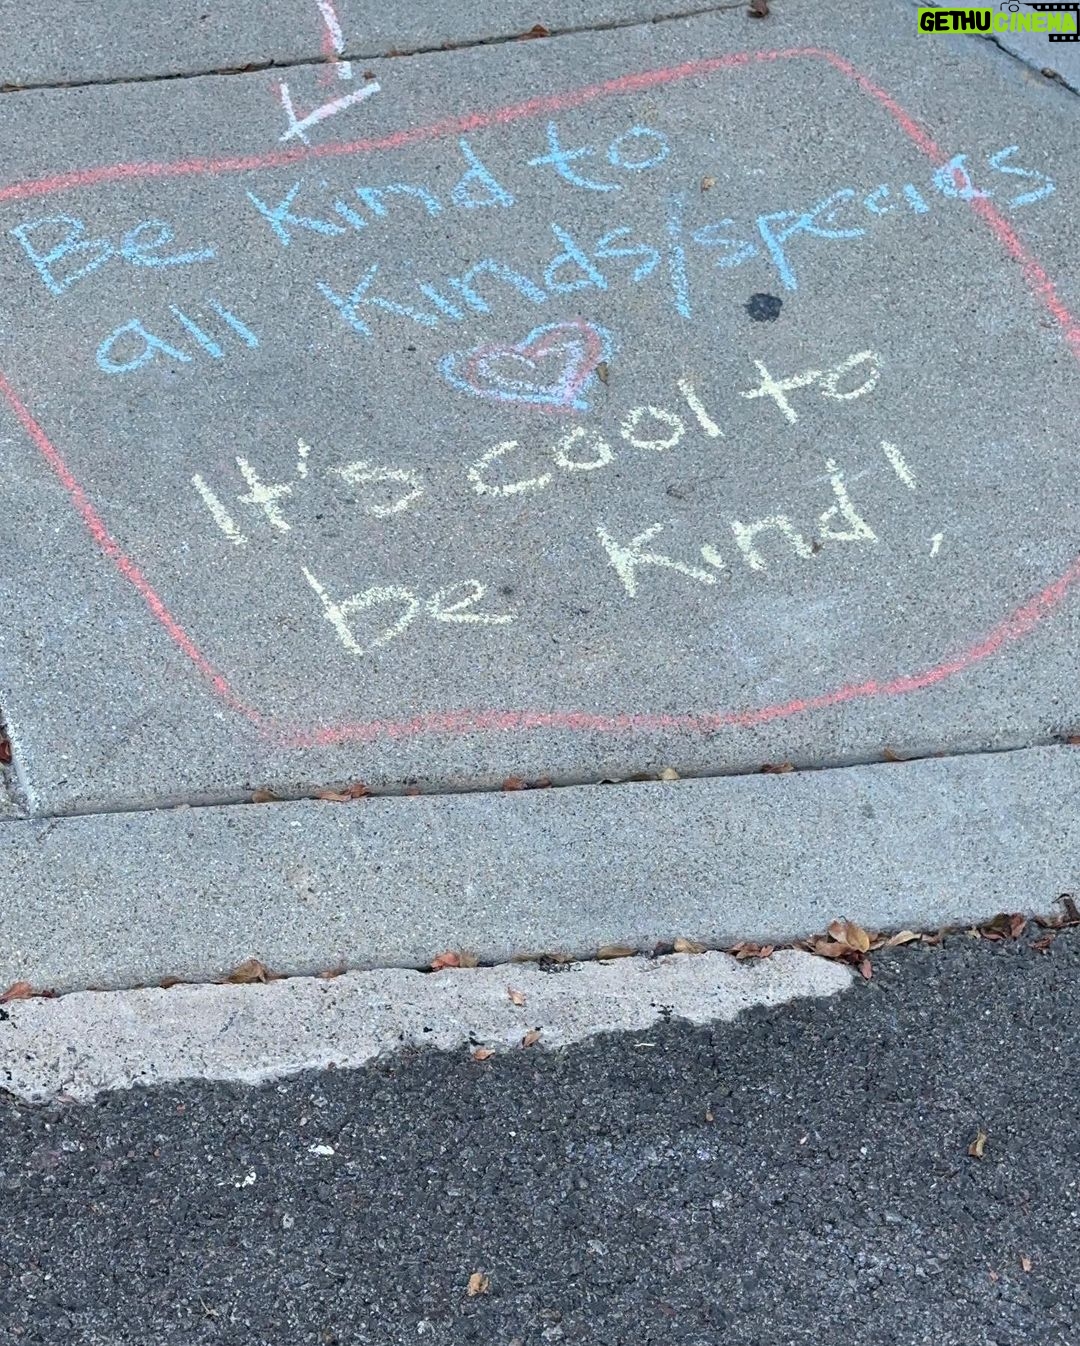 GETHU CINEMA
Be Kind to
all Kinds/species
It's cool to
be kind!